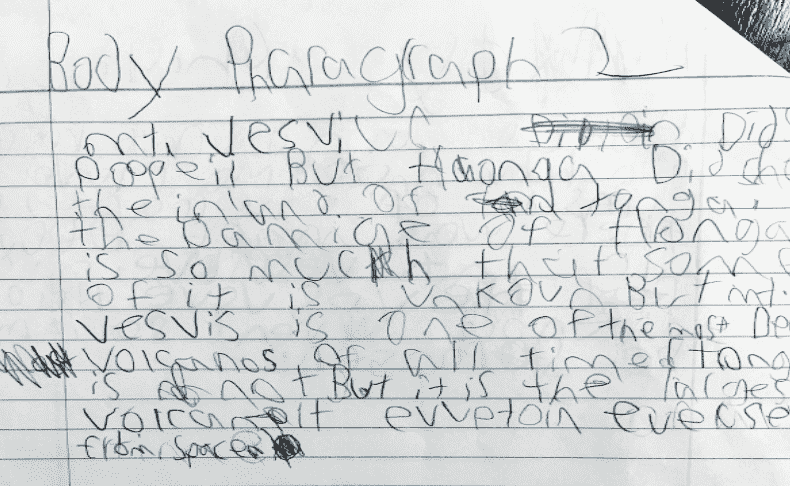 Body Pharagraph 2
mt. Vesvius Did
Popeii But Haonga Did sho
the inland of tonga.
the Damige of Honga
is so much that som
of it is unkoun But mt.
vesvis is one of the most De
volcanos of all time tong
is not But it is the larges
volcanoit evveptoin evearse
from space